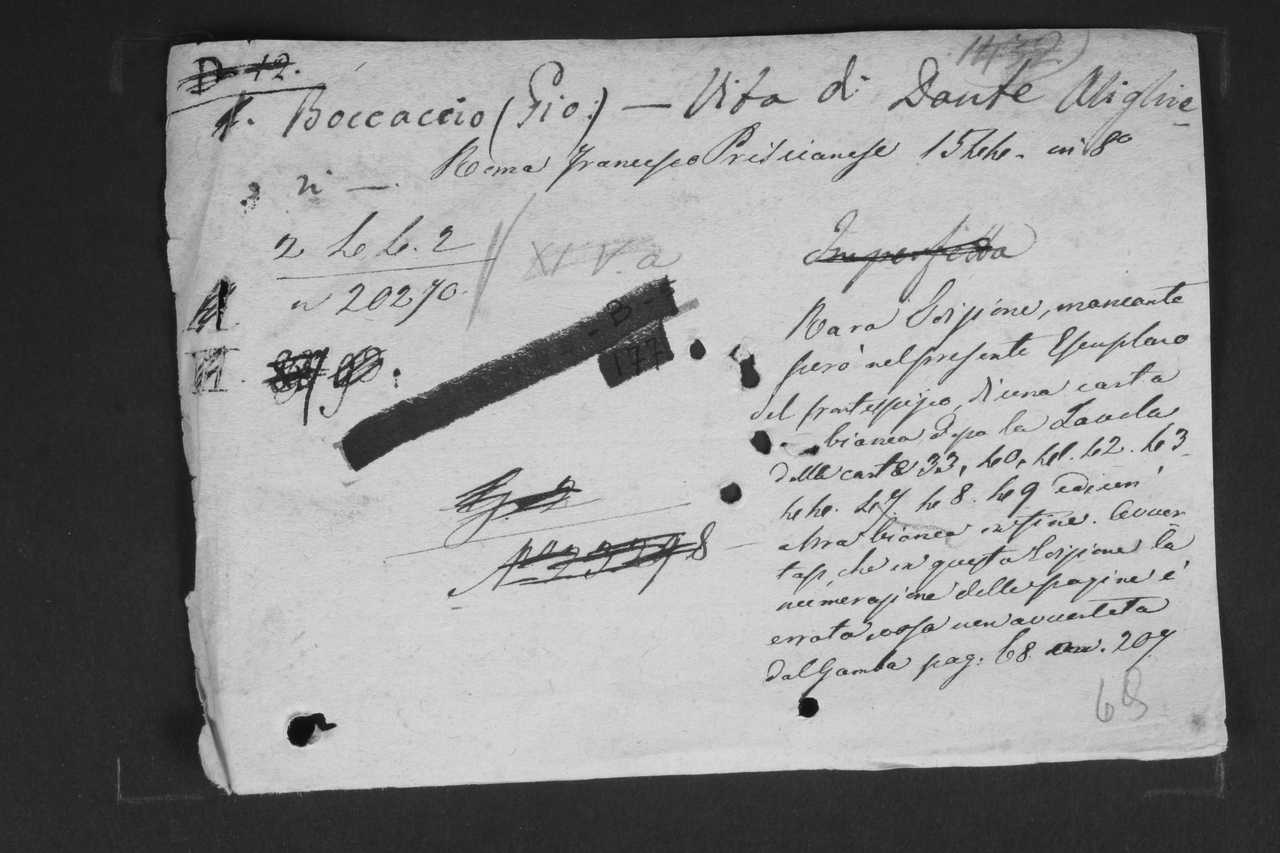 D. 12.
Boccaccio (Gio:) — Vita di Dante Alighie
Roma Francesco Priscianese 1544. in 8o
XI V. a
n 20270.
Imperfetta
Rara Edizione, mancante
però nel presente Esemplare
del frontespizio, di una carta
bianca dopo la Tavola
delle carte 33, 40, 41. 42. 43
44. 47. 48. 49 ed un'
altra bianca in fine. Avver
tasi, che in questa Edizione la
numerazione delle pagine è
errata cosa non avvertita
dal Gamba pag: 68. 207
B
177
68